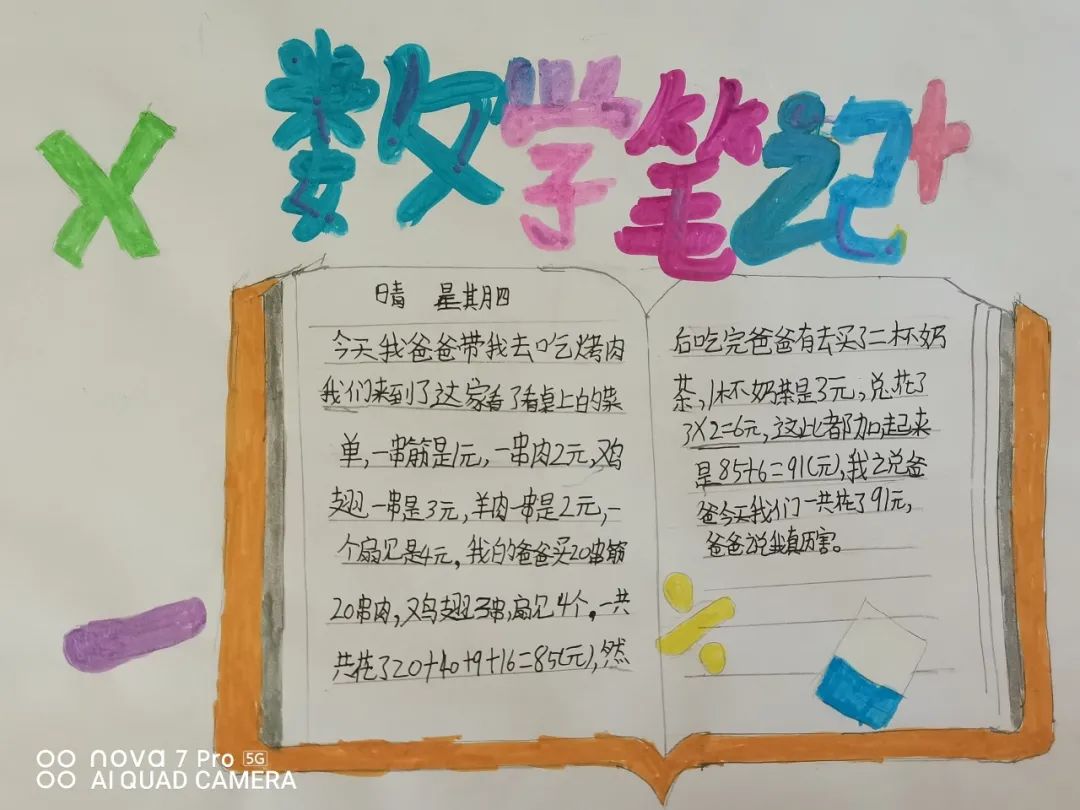 数学笔记
晴 星期四
今天我爸爸带我去吃烤肉
我们来到了这家看了看桌上的菜
单,一串筋是1元,一串肉2元,鸡
翅一串是3元,羊肉一串是2元,一
个扇贝是4元,我的爸爸买20串筋
20串肉,鸡翅3串,扇贝4个。一共
共花了20+40+9+16=85(元),然
后吃完爸爸有去买了二杯奶
茶,1杯奶茶是3元,总花了
3×2=6元,这比都加起来
是85+6=91(元),我说爸
爸今天我们一共花了91元,
爸爸说我真厉害。
nova 7 Pro 5G
AI QUAD CAMERA